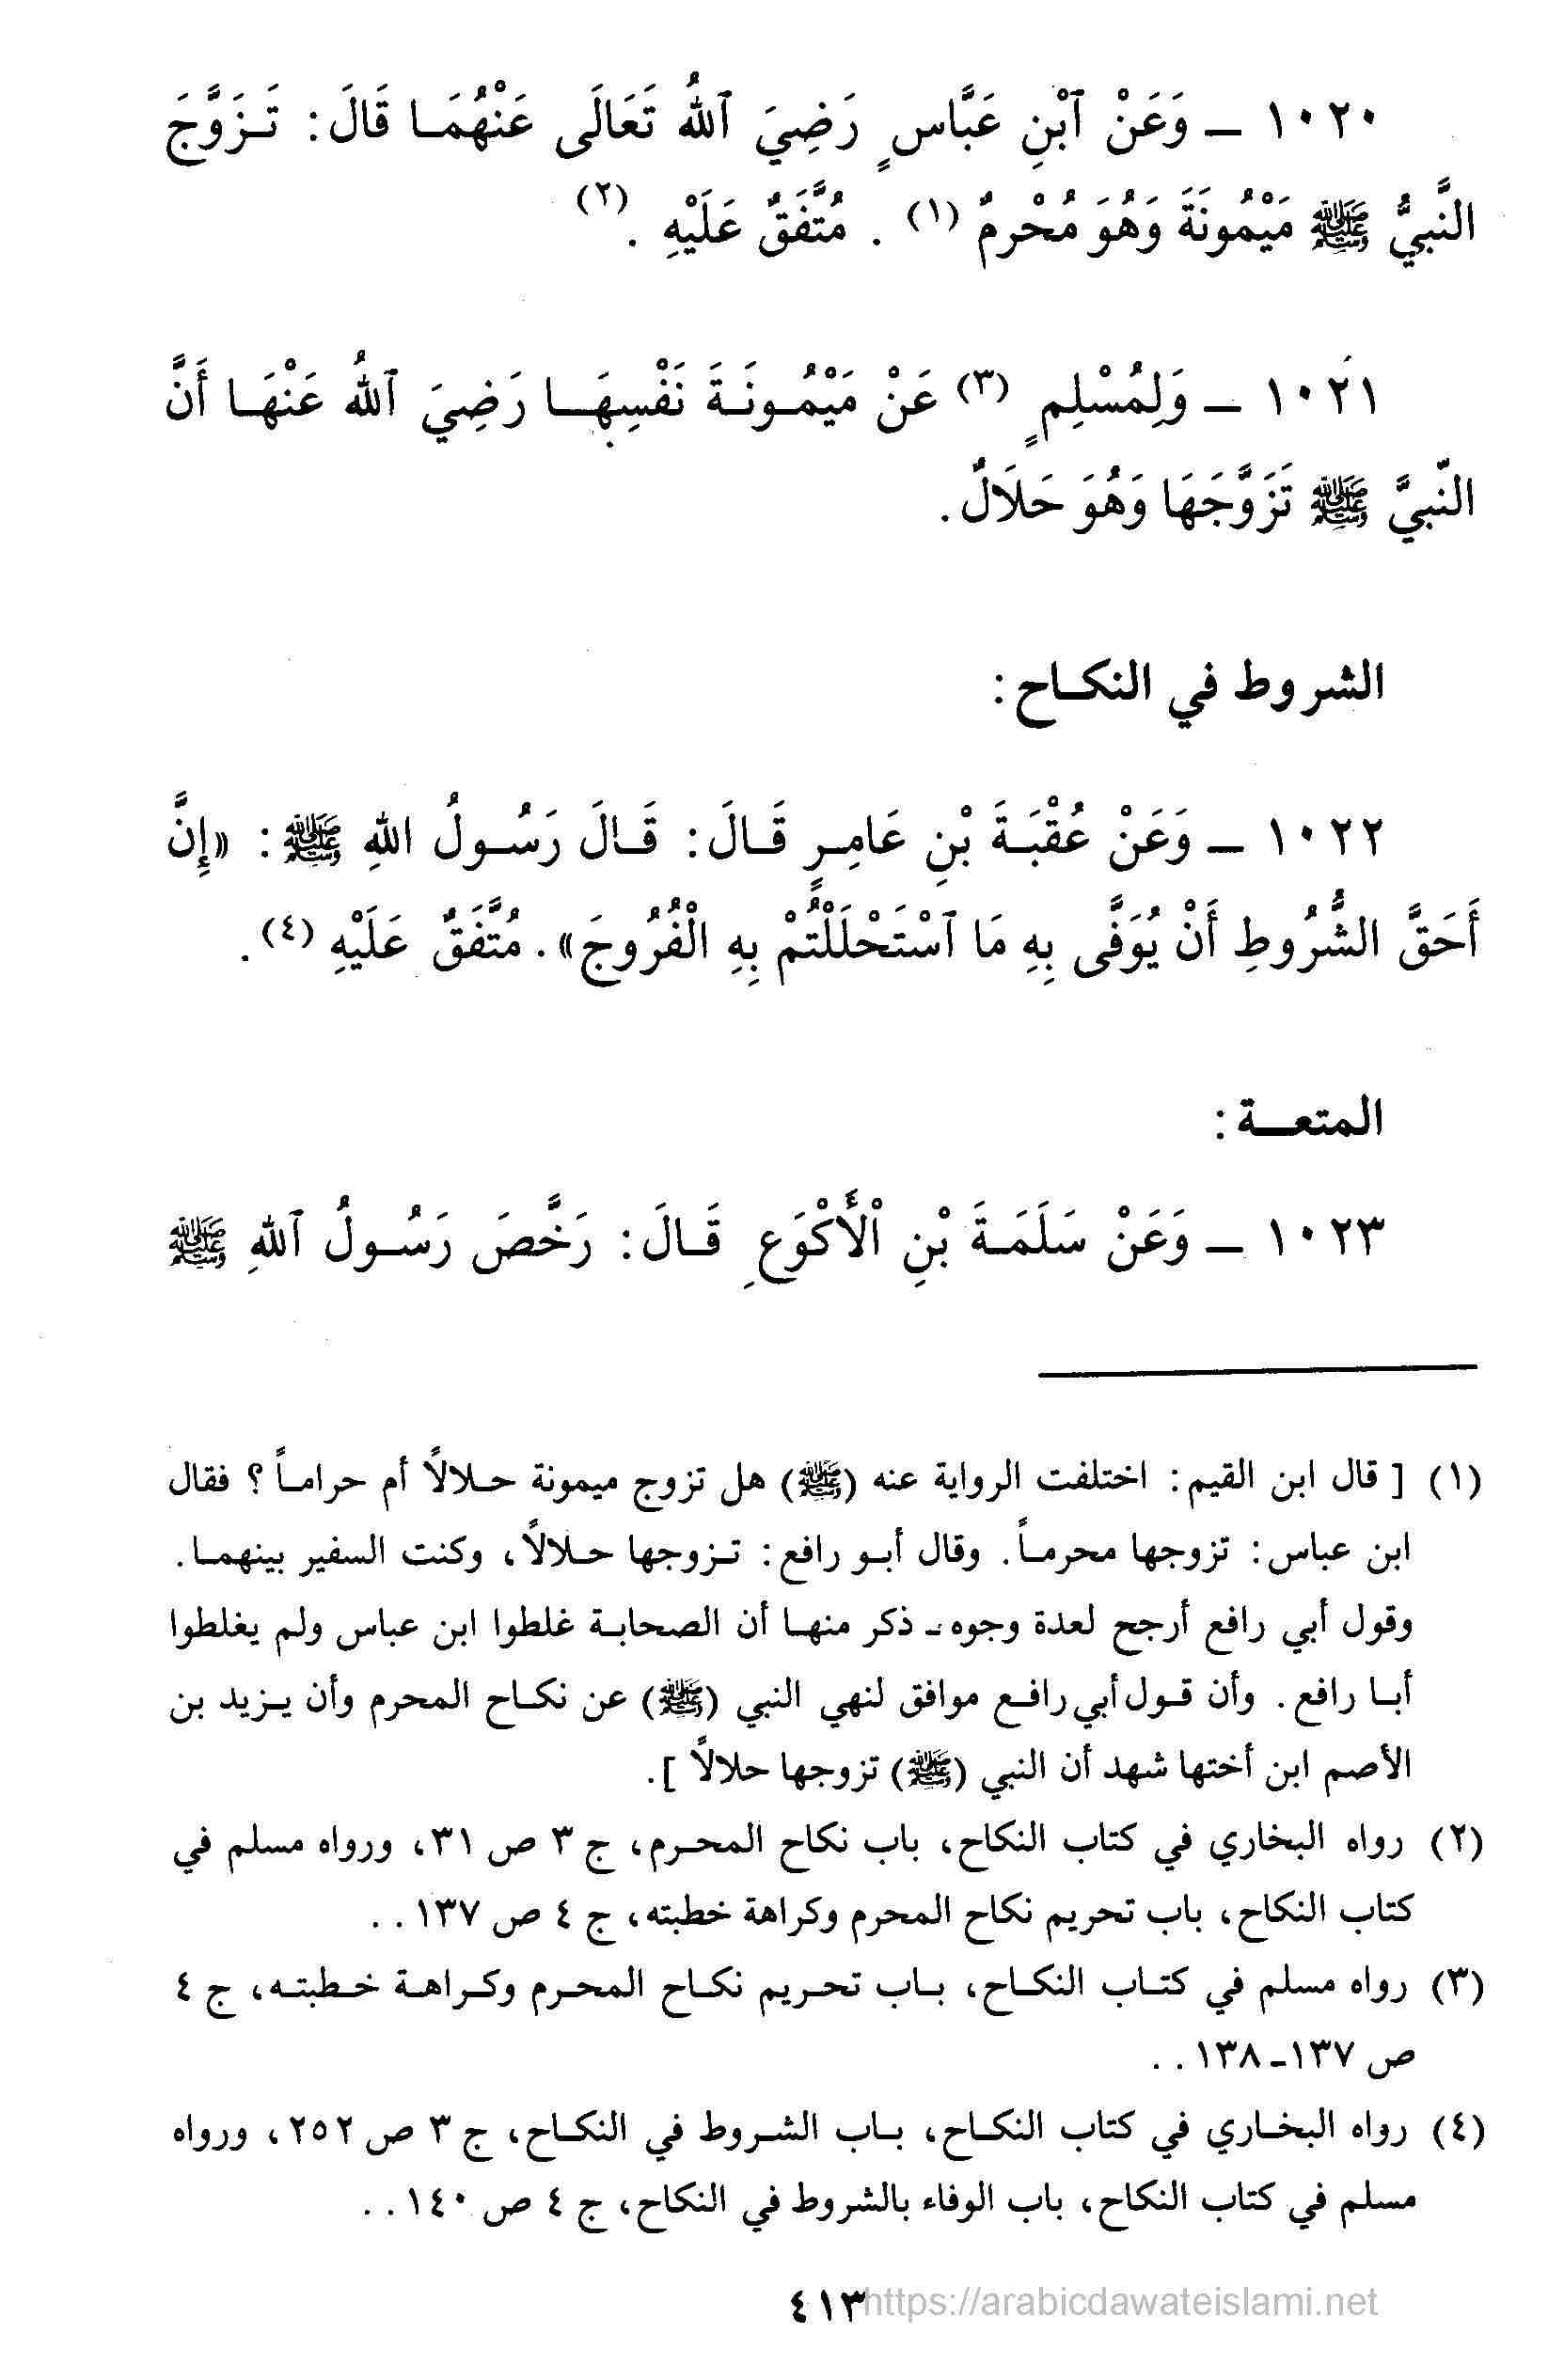 ١٠٢٠ ـ وَعَنْ ٱبْنِ عَبَّاسٍ رَضِيَ ٱللهُ تَعَالَى عَنْهُمَا قَالَ: تَزَوَّجَ
النَّبيُّ ﷺ مَيْمُونَةَ وَهُوَ مُحْرِمٌ (١) . مُتَّفَقٌ عَلَيْهِ (٢) .
١٠٢١ ـ وَلِمُسْلِمٍ (٣) عَنْ مَيْمُونَةَ نَفْسِهَا رَضِيَ ٱللهُ عَنْهَا أَنَّ
النَّبيَّ ﷺ تَزَوَّجَهَا وَهُوَ حَلَالٌ.
الشروط في النكاح:
١٠٢٢ ـ وَعَنْ عُقْبَةَ بْنِ عَامِرٍ قَالَ: قَالَ رَسُولُ اللهِ ﷺ: «إِنَّ
أَحَقَّ الشُّرُوطِ أَنْ يُوَفَّى بِهِ مَا ٱسْتَحْلَلْتُمْ بِهِ الْفُرُوجَ». مُتَّفَقٌ عَلَيْهِ (٤).
المتعة:
١٠٢٣ ـ وَعَنْ سَلَمَةَ بْنِ ٱلْأَكْوَعِ قَالَ: رَخَّصَ رَسُولُ ٱللهِ ﷺ
(١) [ قال ابن القيم: اختلفت الرواية عنه (ﷺ) هل تزوج ميمونة حلالاً أم حراماً ؟ فقال
ابن عباس: تزوجها محرماً. وقال أبو رافع: تزوجها حلالاً، وكنت السفير بينهما.
وقول أبي رافع أرجح لعدة وجوه ـ ذكر منها أن الصحابة غلطوا ابن عباس ولم يغلطوا
أبا رافع. وأن قول أبي رافع موافق لنهي النبي (ﷺ) عن نكاح المحرم وأن يزيد بن
الأصم ابن أختها شهد أن النبي (ﷺ) تزوجها حلالاً ].
(٢) رواه البخاري في كتاب النكاح، باب نكاح المحرم، ج ٣ ص ٣١، ورواه مسلم في
كتاب النكاح، باب تحريم نكاح المحرم وكراهة خطبته، ج ٤ ص ١٣٧ . .
(٣) رواه مسلم في كتاب النكاح، باب تحريم نكاح المحرم وكراهة خطبته، ج ٤
ص ١٣٧ـ١٣٨ . .
(٤) رواه البخاري في كتاب النكاح، باب الشروط في النكاح، ج ٣ ص ٢٥٢، ورواه
مسلم في كتاب النكاح، باب الوفاء بالشروط في النكاح، ج ٤ ص ١٤٠ . .
٤١٣
https://arabicdawateislami.net